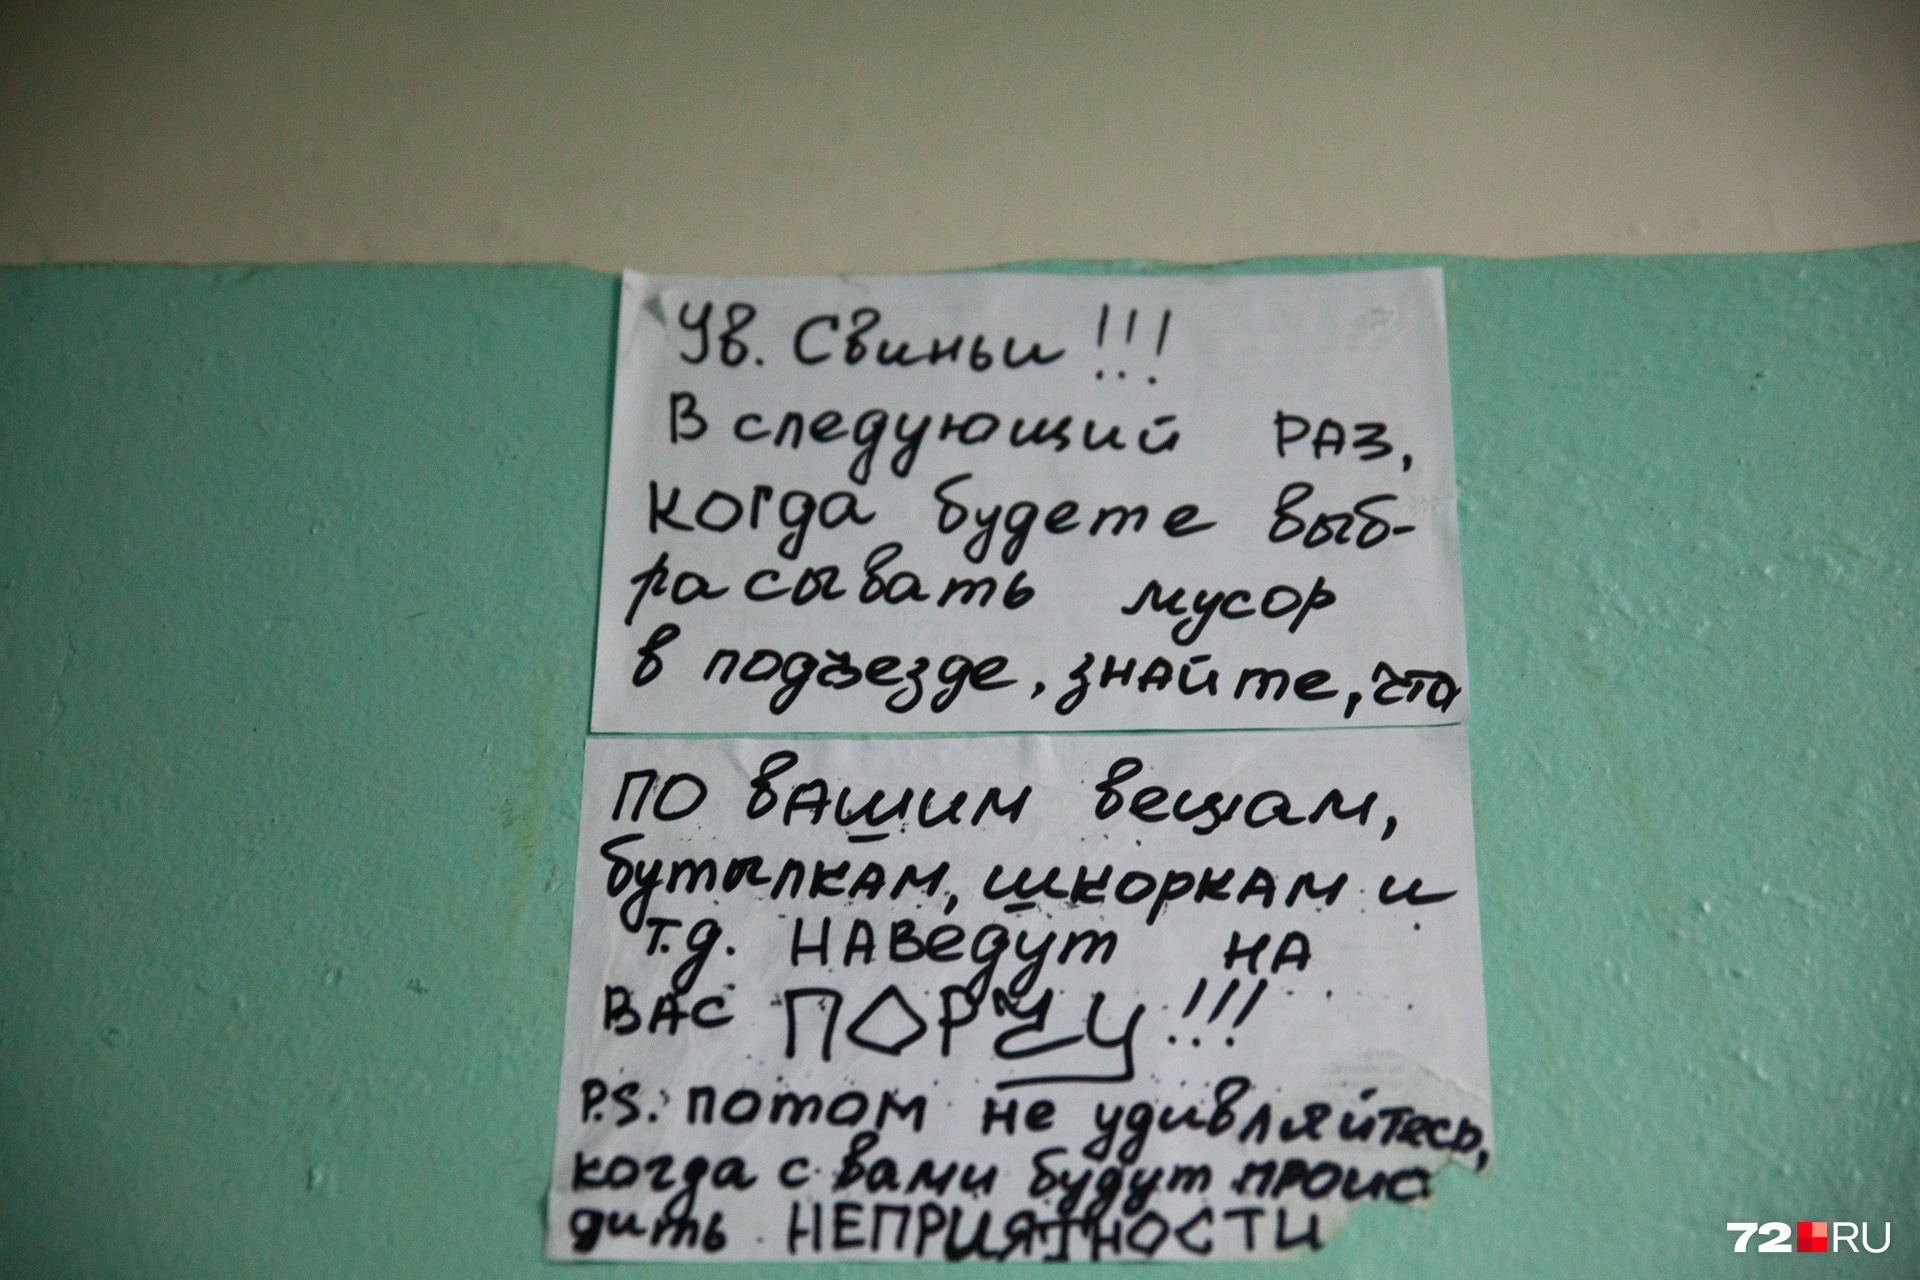 Ув. Свиньи!!!
В следующий РАЗ,
когда будете выб-
расывать мусор
в подъезде, знайте, что
по вашим вещам,
бутылкам, шкоркам и
т.д. наведут на
вас ПОРЧУ!!!
P.S. потом не удивляйтесь,
когда с вами будут проис
дить НЕПРИЯТНОСТИ
72.RU